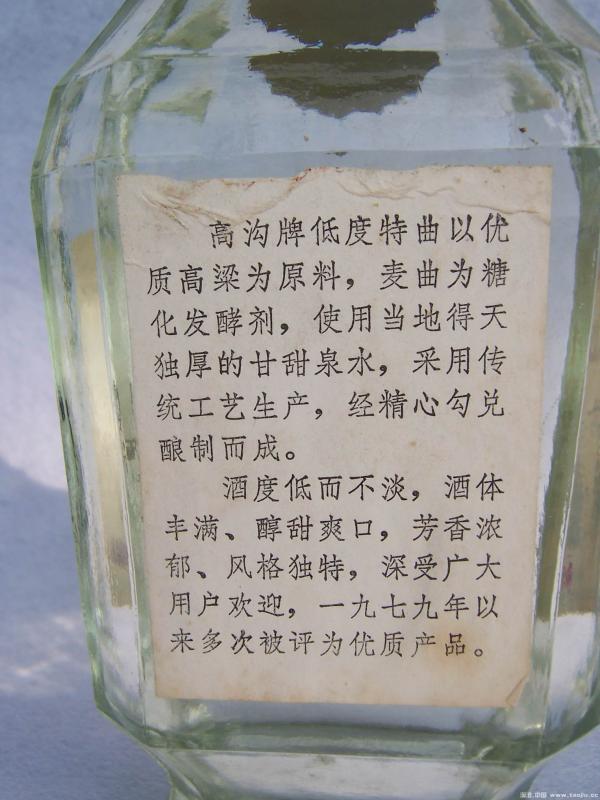 高沟牌低度特曲以优
质高粱为原料，麦曲为糖
化发酵剂，使用当地得天
独厚的甘甜泉水，采用传
统工艺生产，经精心勾兑
酿制而成。
酒度低而不淡，酒体
丰满、醇甜爽口，芳香浓
郁、风格独特，深受广大
用户欢迎，一九七九年以
来多次被评为优质产品。